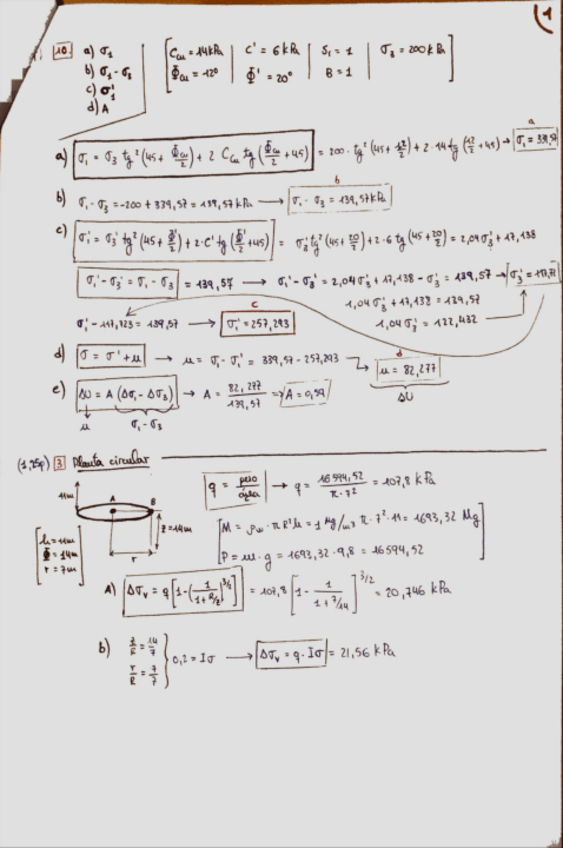 (1
10. a) σ₁ C_cu = 14 kPa C' = 6 kPa S₁ = 1 σ₃ = 200 kPa
b) σ₁ - σ₃ Φ_cu = 12° Φ' = 20° B = 1
c) σ'₁
d) A
a) σ₁ = σ₃ tg² (45 + Φ_cu/2) + 2 C_cu tg (Φ_cu/2 + 45) = 200 · tg² (45 + 12/2) + 2 · 14 tg (12/2 + 45) → σ₁ = 339,57 a
b) σ₁ - σ₃ = -200 + 339,57 = 139,57 kPa → σ₁ - σ₃ = 139,57 kPa b
c) σ₁' = σ₃' tg² (45 + Φ'/2) + 2 · C' tg (Φ'/2 + 45) = σ₃' tg² (45 + 20/2) + 2 · 6 tg (45 + 20/2) = 2,04 σ₃' + 17,138
σ₁' - σ₃' = σ₁ - σ₃ = 139,57 → σ₁' - σ₃' = 2,04 σ₃' + 17,138 - σ₃' = 139,57 →
1,04 σ₃' + 17,138 = 139,57
σ₁' - 117,723 = 139,57 → σ₁' = 257,293 c
1,04 σ₃' = 122,432
d) σ = σ' + u → u = σ₁ - σ₁' = 339,57 - 257,293 → u = 82,277 d
ΔU
e) ΔU = A (Δσ₁ - Δσ₃) → A = 82,277 / 139,57 ⇒ A = 0,59
u σ₁ - σ₃
(1,25p) 3 Planta circular
q = peso / área → q = 16594,52 / π · 7² = 107,8 kPa
11m A B z = 14m r
h = 11m
Φ = 14m
r = 7m
M = ρw · π R² h = 1 Mg/m³ π · 7² · 11 = 1693,32 Mg
P = m · g = 1693,32 · 9,8 = 16594,52
A) Δσᵥ = q [1 - (1 / 1 + R/z)^3/2] = 107,8 [1 - 1 / 1 + 7/14]^3/2 = 20,746 kPa
b) z/R = 14/7
r/R = 7/7 } 0,2 = Iσ → Δσᵥ = q · Iσ = 21,56 kPa